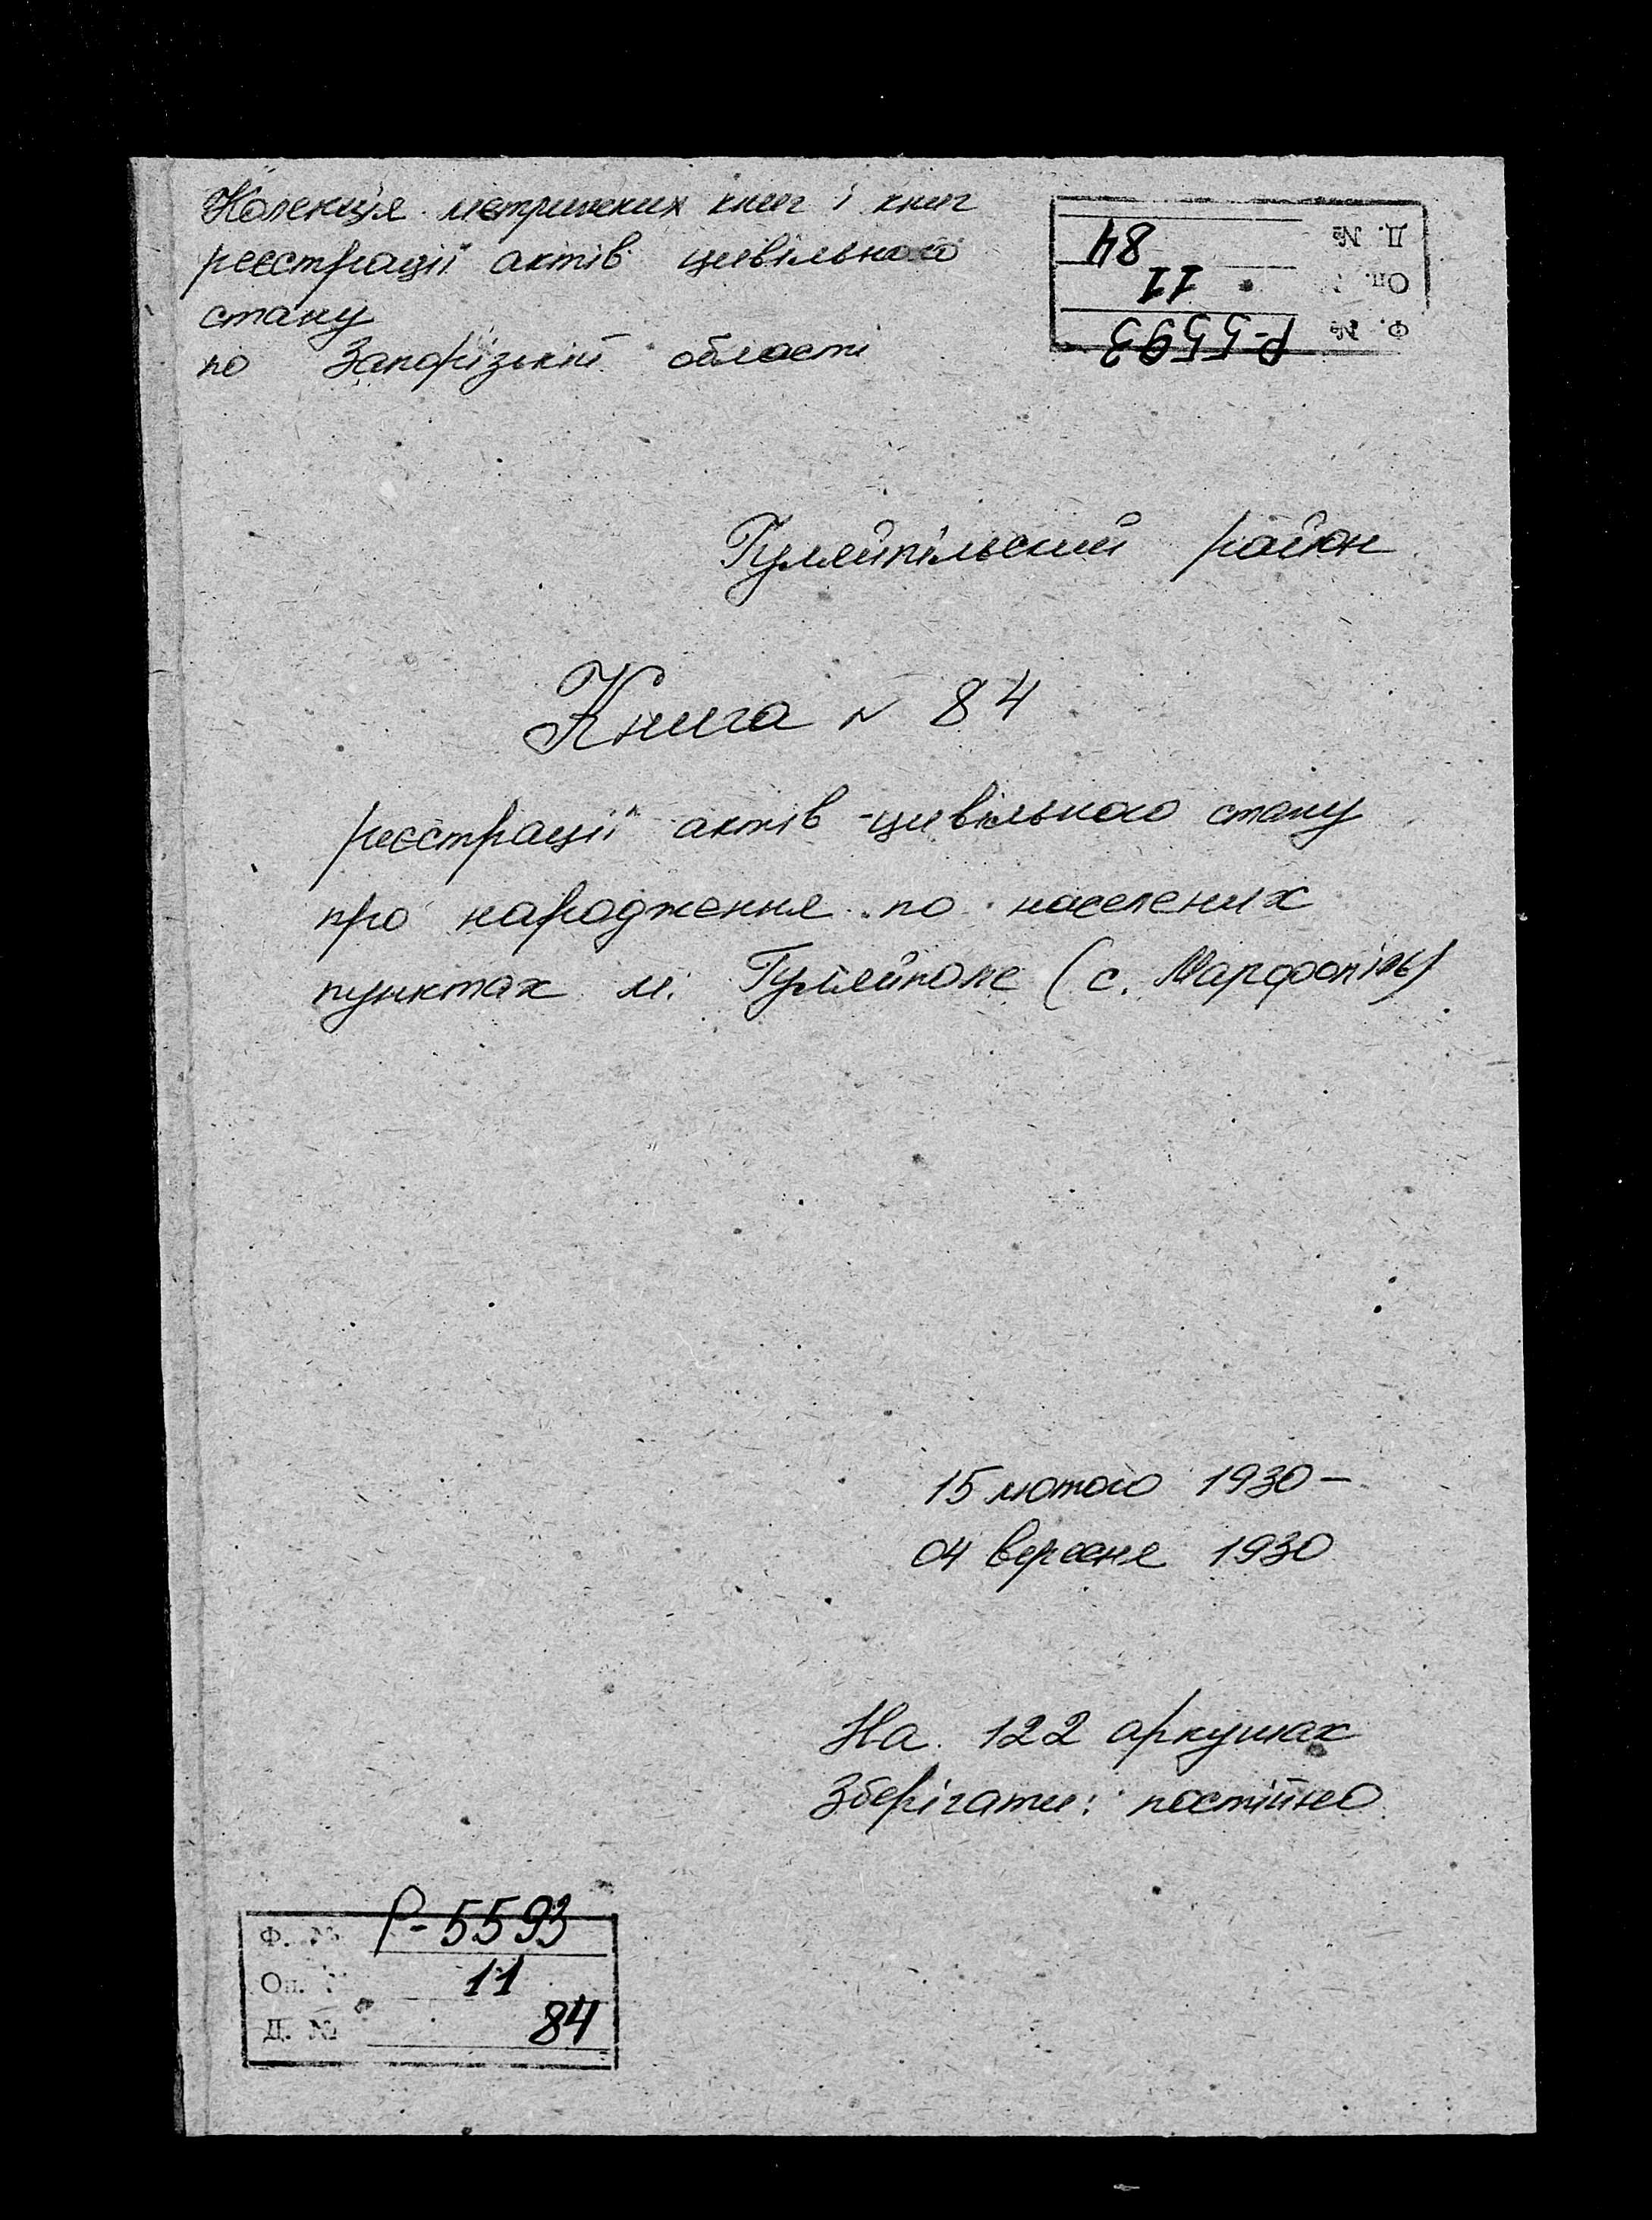 Колекція метричних книг і книг
реєстрації актів цивільного
стану
по Запорізькій області
Д. № 84
Оп. 11
Ф. № Р-5593
Гуляйпільський район
Книга № 84
реєстрації актів цивільного стану
про народження по населених
пунктах м. Гуляйполе (с. Марфопіль)
15 лютого 1930 –
04 вересня 1930
На 122 аркушах
Зберігати: постійно
Ф. № Р-5593
Оп. 11
Д. № 84